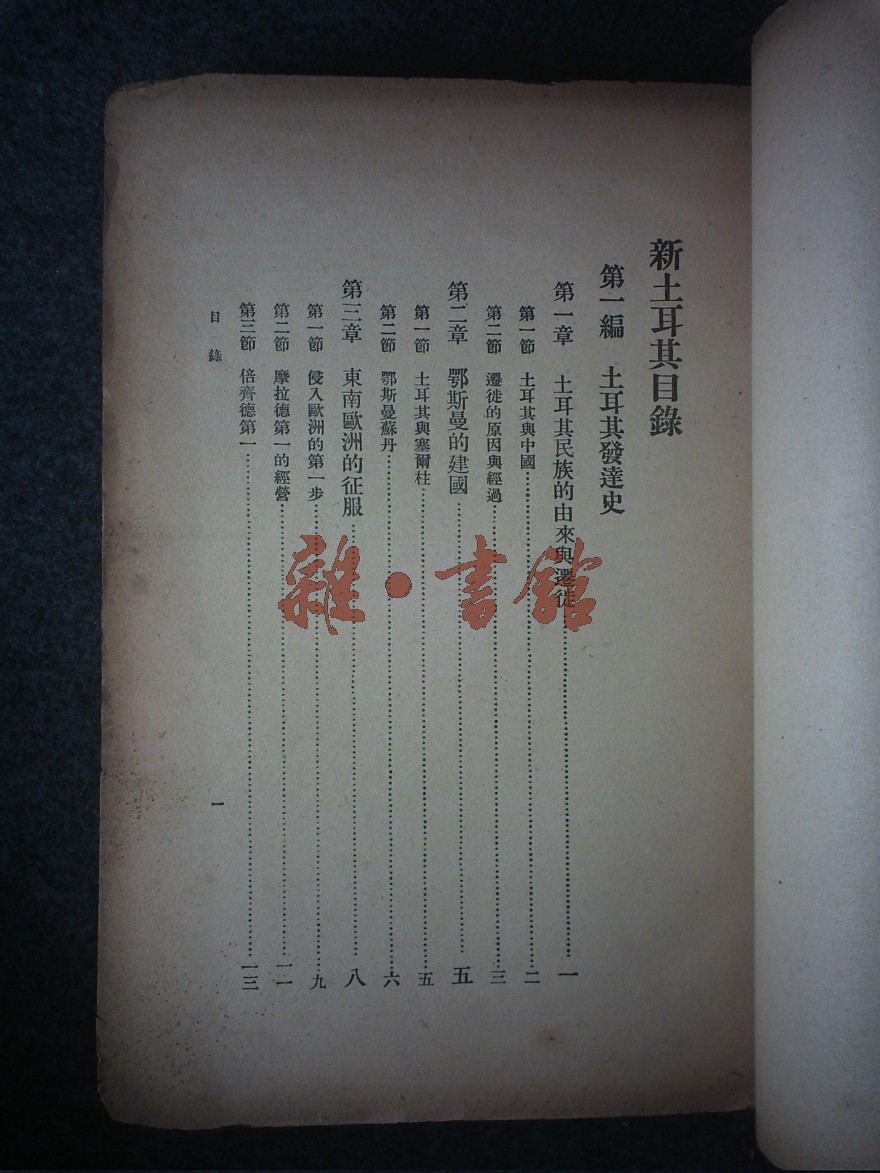 新土耳其目錄
第一編　土耳其發達史
第一章　土耳其民族的由來與遷徙……一
第一節　土耳其與中國……二
第二節　遷徙的原因與經過……三
第二章　鄂斯曼的建國……五
第一節　土耳其與塞爾柱……五
第二節　鄂斯曼蘇丹……六
第三章　東南歐洲的征服……八
第一節　侵入歐洲的第一步……九
第二節　摩拉德第一的經營……一二
第三節　倍齊德第一……一三
目錄
一
雜·書館